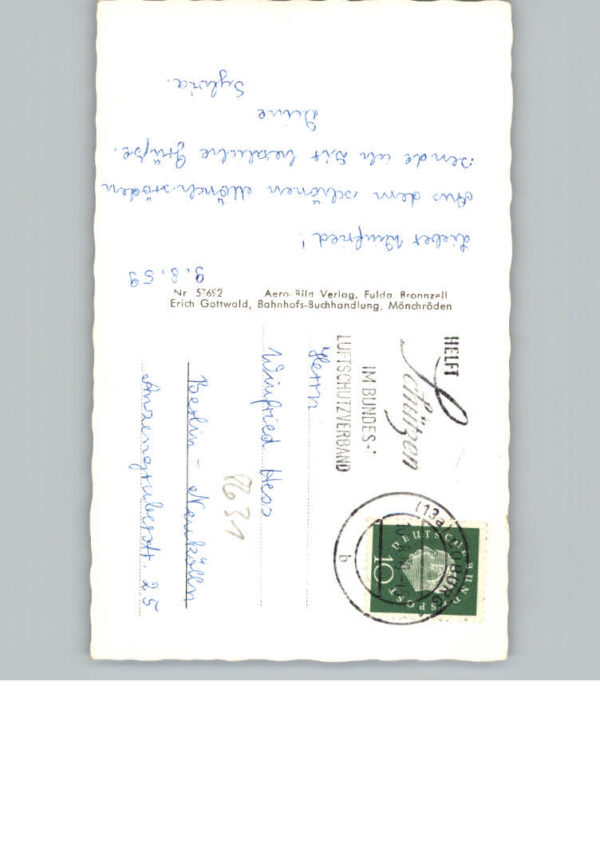 9.8.59
Lieber Winfried!
Aus dem schönen Mönchröden
sende ich Dir herzliche Grüße.
Deine
Sylvia.
Nr 57652 Aero-Bild Verlag, Fulda Bronnzell
Erich Gottwald, Bahnhofs-Buchhandlung, Mönchröden
HELFT
Schützen
IM BUNDES-
LUFTSCHUTZVERBAND
(13a)
b
DEUTSCHE BUNDESPOST
10
Herrn
Winfried Hess
Berlin - Neukölln
Anzengruberstr. 25
8631